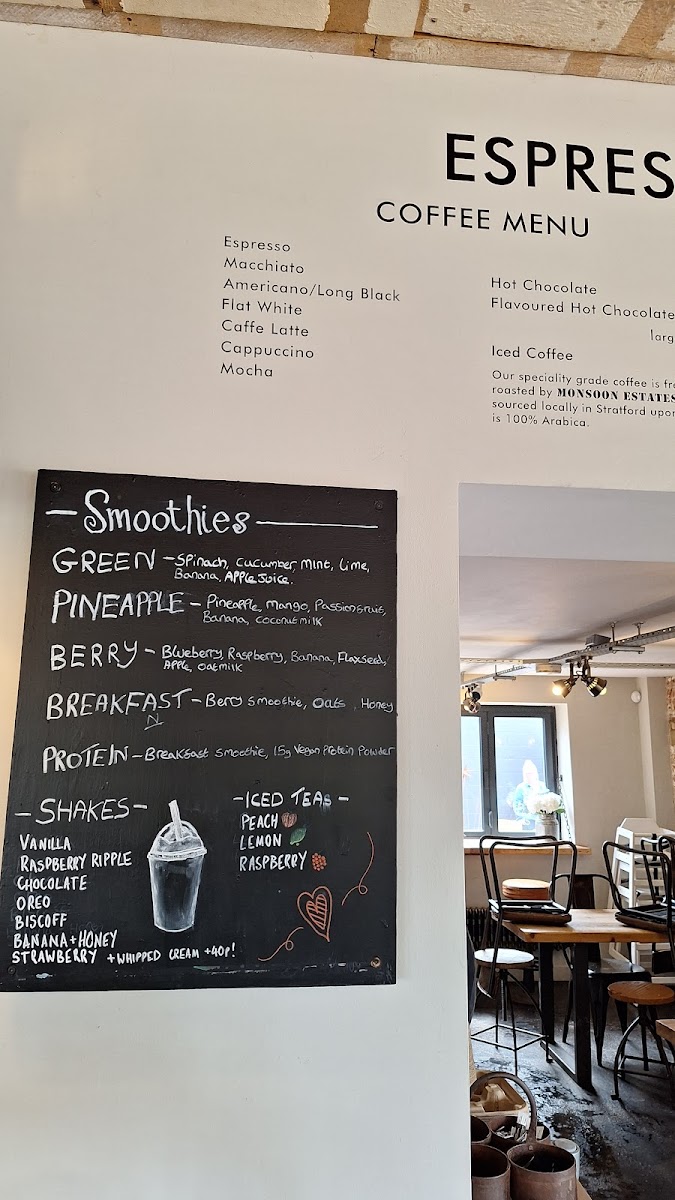 ESPRES
COFFEE MENU
Espresso
Macchiato
Americano/Long Black
Flat White
Caffe Latte
Cappuccino
Mocha
Hot Chocolate
Flavoured Hot Chocolate
larg
Iced Coffee
Our speciality grade coffee is fr
roasted by MONSOON ESTATES
sourced locally in Stratford upo
is 100% Arabica.
- Smoothies -
GREEN - Spinach, cucumber mint, Lime,
Banana, Apple Juice.
PINEAPPLE - Pineapple, mango, Passionfruit,
Banana, coconut milk
BERRY - Blueberry, Raspberry, Banana, Flaxseed,
Apple, oatmilk
BREAKFAST - Berry smoothie, oats, Honey
N
PROTEIN - Breakfast smoothie, 15g Vegan Protein Powder
- SHAKES -
VANILLA
RASPBERRY RIPPLE
CHOCOLATE
OREO
BISCOFF
BANANA + HONEY
STRAWBERRY + WHIPPED CREAM + 40p!
- ICED TEAS -
PEACH
LEMON
RASPBERRY